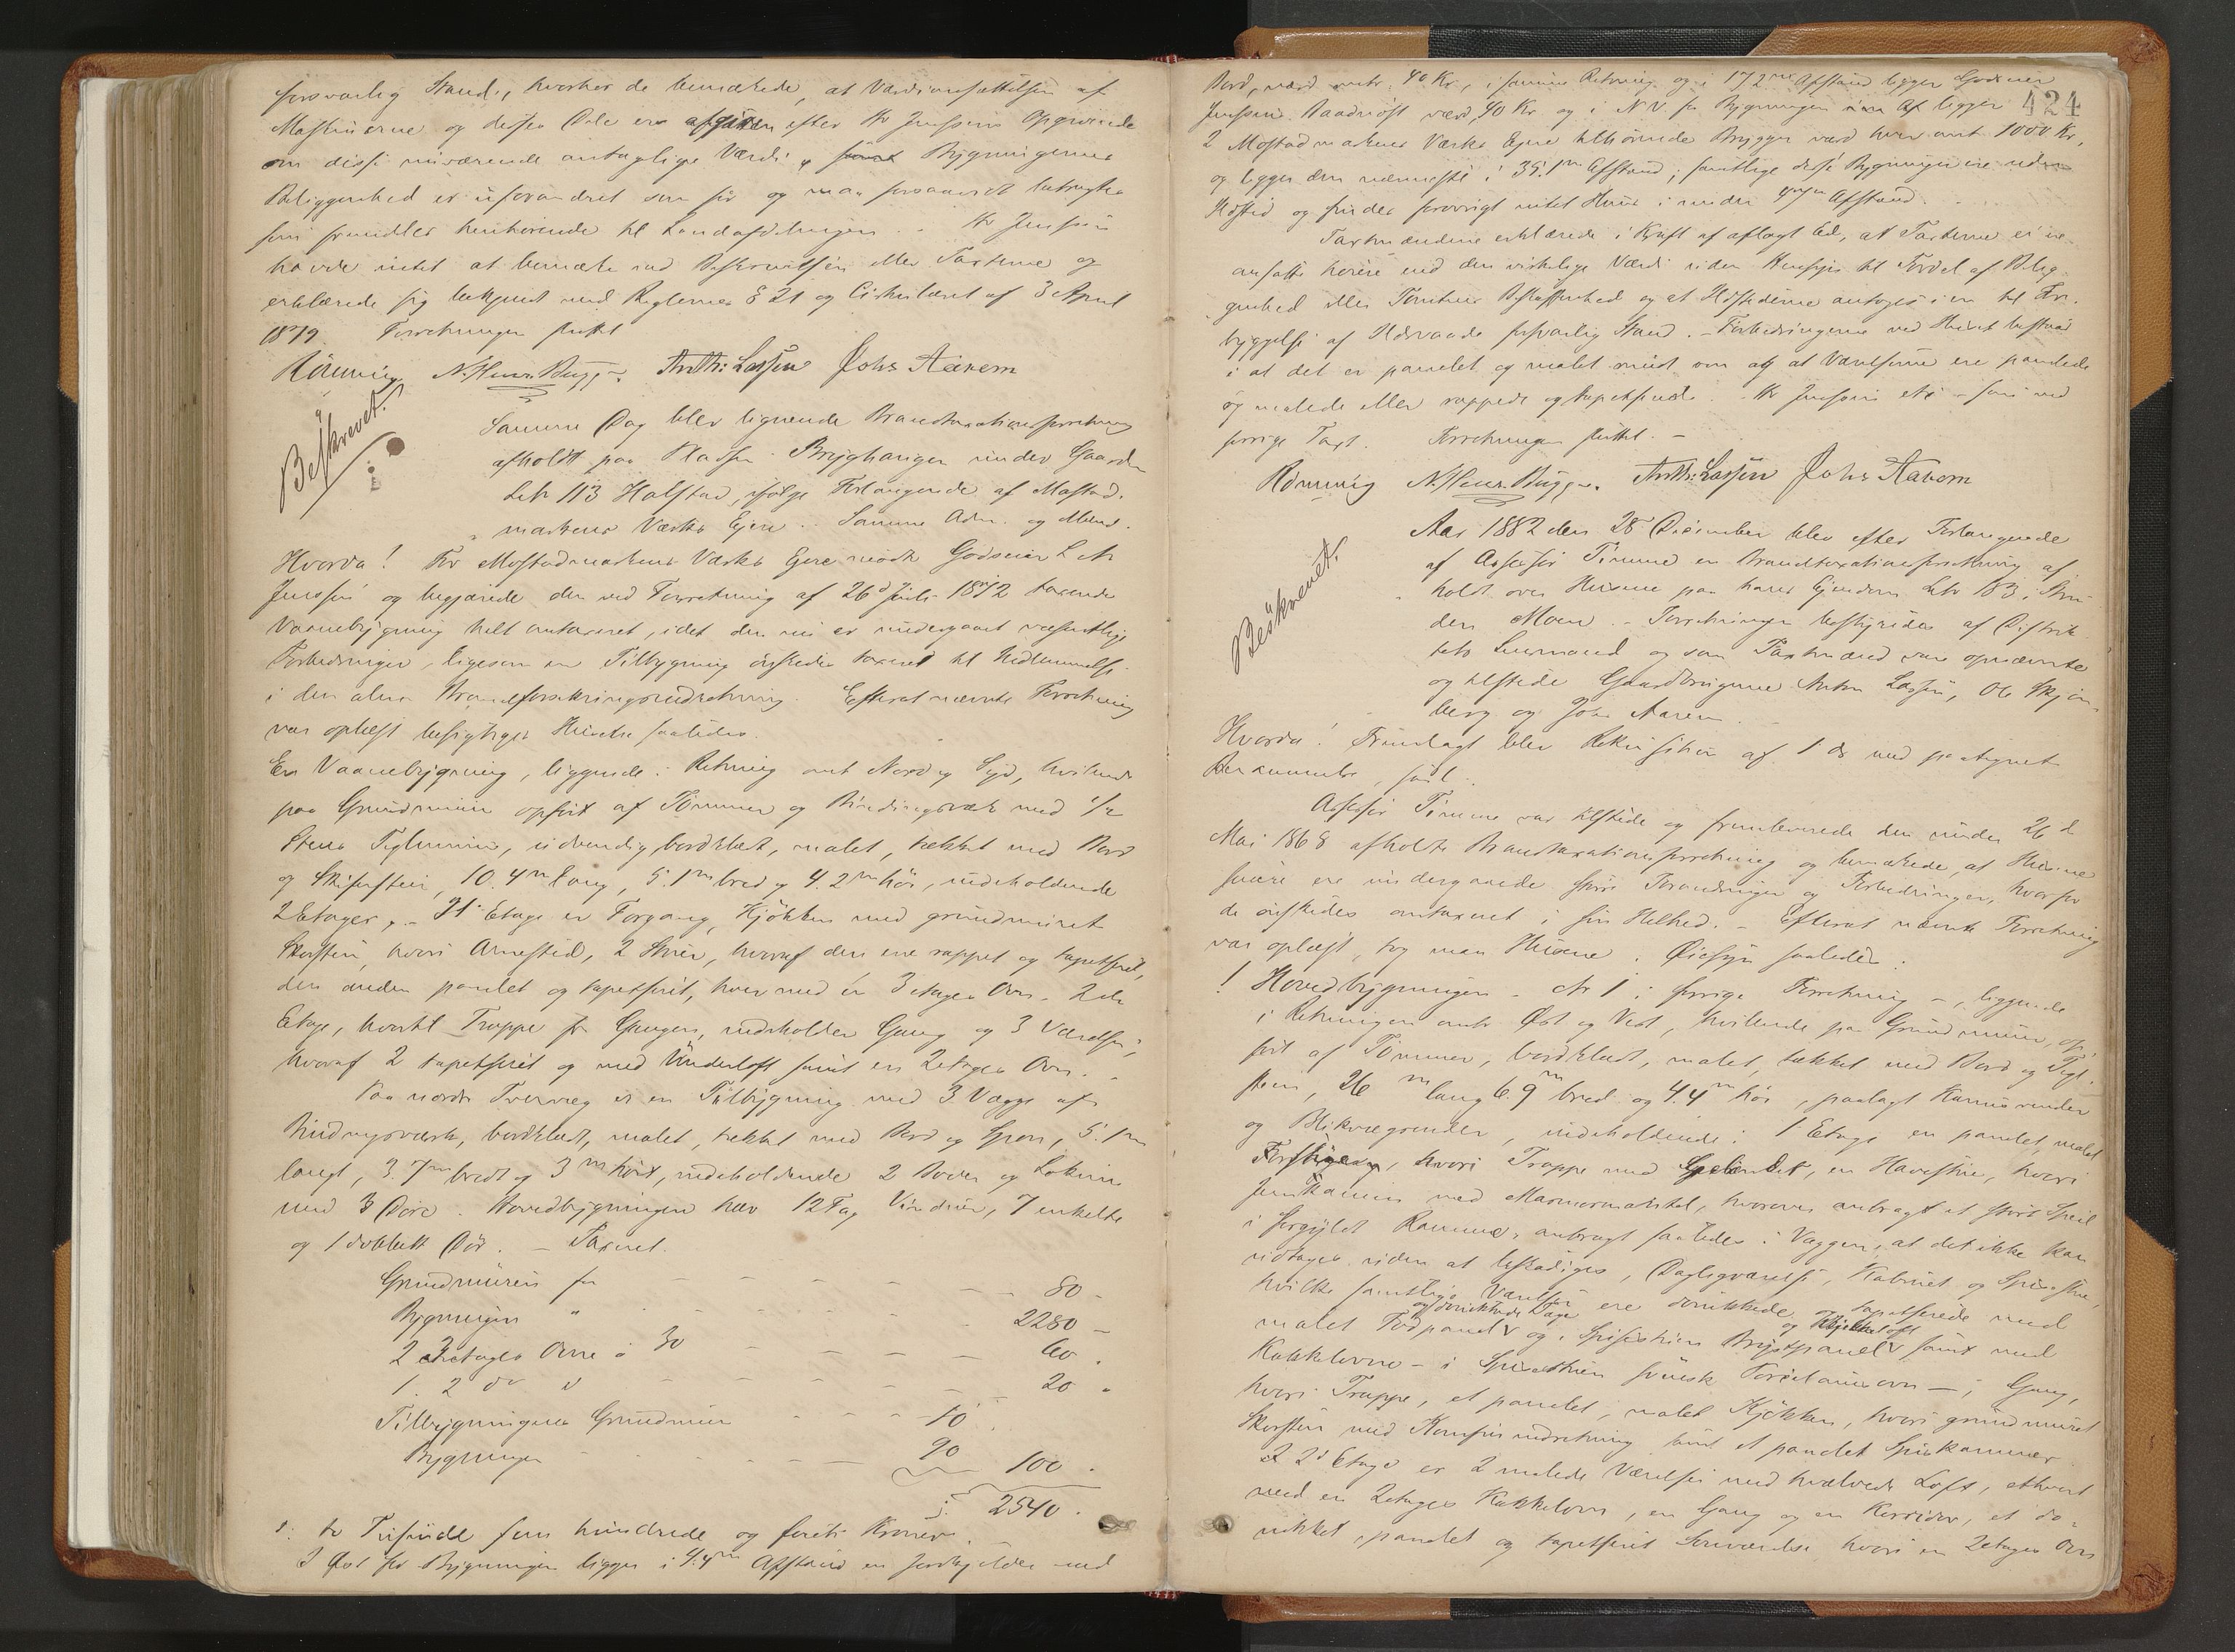 forsvarlig Stand, hvorhos de bemærkede, at Værdiansættelsen af
Maskinerne og disses Dele ere afgiven efter Hr Jenssens Opgivende
om disse nuværende antagelige Værdi, samt Bygningernes
Beliggenhed er uforandret som før og maa forsaavidt betragtes
som fremdeles henhørende til Landafdelingen. Hr Jenssen
havde intet at bemærke ved Beskrivelsen eller Taxterne og
erklærede sig bekjendt med Reglernes § 21 og Cirkulæret af 3 April
1879. Forretningen sluttet
Rönning N. Henr. Bugge. Anth: Lassen Johs Aarem
Beskrevet.
Samme Dag blev lignende Brandtaxationsforretning
afholdt paa Pladsen Bryghaugen under Gaarden
Lbr 113 Halstad, ifølge Forlangende af Mostad-
markens Værks Eiere. Samme Adm. og Mænd.
Hvorda! For Mostadmarkens Værks Eiere mødte Godseier L N
Jenssen og begjærede den ved Forretning af 26d Juli 1872 taxerede
Vaanebygning helt omtaxeret, idet den nu er undergaaet væsentlige
Forbedringer, ligesom en Tilbygning ønskedes taxeret til Indlemmelse
i den alm. Brandforsikringsindretning. Efterat nævnte Forretning
var oplæst besigtiges Husene saaledes.
En Vaanebygning, liggende i Retning omt Nord og Syd, hvilende
paa Grundmuur opført af Tømmer og Bindingsværk med 1/2
Stens Teglmuur, udvendig bordklædt, malet, tækket med Bord
og Skifersten, 10.4m lang, 5.1m bred og 4.2m høi, indeholdende
2 Etager. I 1ste Etage er Forgang, Kjøkken med grundmuret
Skorsten, hvori Arnested, 2 Stuer, hvoraf den ene rappet og tapetseret,
den anden panelet og tapetseret, hver med en 3 etages Ovn. 2den
Etage, hvortil Trappe fra Gangen, indeholder Gang og 3 Værelser,
hvoraf 2 tapetseret og med Underloft samt en 2 etages Ovn.
Paa nordre Tvervæg er en Tilbygning med 3 Vægge af
Bindingsværk, bordklædt, malet, tækket med Bord og Spon, 5.1m
langt, 3.7m bredt og 3m høit, indeholdende 2 Boder og Lokum
med 3 Døre. Hovedbygningen har 12 Fag Vinduer, 7 enkelte
og 1 dobbelt Dör. – Taxeret.
Grundmuren for 80 –
Bygningen " 2280 –
2 3 etages Ovne á 30 60 "
1 2 do d 20 "
Tilbygningens Grundmuur 10
Bygningen 90 100 "
2540 "
to Tusinde fem hundrede og firti Kroner.
I Øst for Bygningen ligger i 4.4m Afstand en Jordkjelder med
424
Bord, værd omtr. 40 Kr, i samme Retning og i 172m Afstand ligger Godseier
Jenssens Baadnøst værd 40 Kr og i N V for Bygningen ligger
2 Mostadmarkens Værks Eiere tilhørende Brygger værd hver omt 1000 Kr,
og ligger den nærmeste i 35.1m Afstand; samtlige disse Bygninger ere uden
Ildsted og findes forøvrigt intet Huus i under Afstand.
Taxtmændene erklærede i Kraft af aflagt Ed, at Taxterne ei ere
ansatte høiere end den virkelige Værdi uden Hensyn til Fordel af Belig-
genhed eller Tomtens Beskaffenhed og at Ildstederne antoges i en til Fore-
byggelse af Ildsvaade forsvarlig Stand. – Forbedringerne ved Huset bestaar
i at det er panelet og malet rundt om og at Værelserne ere panelede
og malede eller rappede og tapetserede. Hr Jenssen som ved
forrige Taxt. Forretningen sluttet. –
Rönning N. Henr. Bugge. Anth: Lassen Johs Aarem
Beskrevet.
Aar 1882 den 28 December blev efter Forlangende
af Assessor Timme en Brandtaxationsforretning af-
holdt over Husene paa hans Eiendom Lbr 183 i Strin-
den Moen. – Forretningen bestyredes af Distrik-
tets Lensmand og som Taxtmænd vare opnævnte
og tilstede Gaardbrugerne Anton Lassen, Ole Skjøn-
berg og Johs Aarem.
Hvorda! Fremlagt blev Rekvisition af 1 ds med paategnet
Berammelse,
Assessor Timme var tilstede og fremleverede den under 26d
Mai 1868 afholdte Brandtaxationsforretning og bemærkede, at Husene
senere ere undergaaede store Forandringer og Forbedringer, hvorfor
de ønskedes omtaxeret i sin Helhed. – Efterat nævnte Forretning
var oplæst, tog man Husene i Øiesyn saaledes:
1 Hovedbygningen – No 1 i forrige Forretning –, liggende
i Retningen omtr Øst og Vest, hvilende paa Grundmuur, op-
ført af Tømmer, bordklædt, malet, tækket med Bord og Tegl-
sten, 26 m lang 6.9m bred og 4.4m høi, paalagt Kamsrender
og Blikrægrender, indeholdende i 1 Etage en panelet, malet
Forstue, hvori Trappe med Gelænder, en Havestue, hvori
Jernkamin med Marmormantel, hvorover anbragt et stort Speil
i forgyldt Ramme, anbragt saaledes i Væggen, at det ikke kan
udtages uden at beskadiges, Dagligværelse, Kabinet og Spisestue,
hvilke samtlige Værelser ere dorikkede og tapetserede med
og dorikkede Tage
malet Fodpanel og i Spisestuen Brystpanel samt med
Kakkelovne – i Spisestuen svensk Porcelainsovn –; Gang,
hvori Trappe, et panelet, malet Kjøkken, hvori grundmuret
Skorsten med Komfurindretning samt et panelet Spiskammer
I 2d Etage er 2 malede Værelser med hvælvede Loft, ethvert
med en 2 etages Kakkelovn, en Gang og en Korridor, et do-
rikket, panelet og tapetseret Soveværelse hvori en 2 etages Ovn